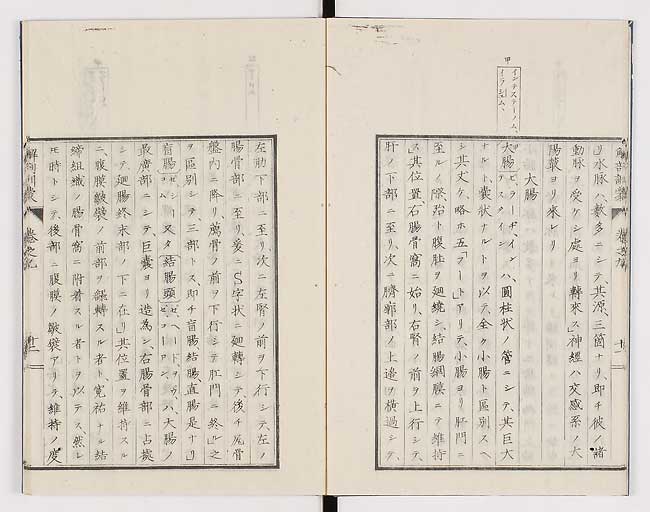 リ水脉ハ、數多ニシテ其源、三箇ナリ、即チ彼ノ諸
動脉ヲ受ケシ處ヨリ轉來ス」神經ハ交感系ノ大
陽叢ヨリ來レリ
大腸
甲
インテステーノム、
イラシュム、
大腸 ゼ、ラーヂ、インテスタイン ハ、圓柱狀ノ管ニシテ、其巨大
ナルト囊狀ナルトヲ以テ、全ク小腸ト區別スヘ
シ其丈ケ、略ホ五「フート」アリテ、小腸ヨリ肛門ニ
至ルノ際殆ト腹肚ヲ廻繞シ、結腸綱膜ニテ維持
ス其位置、右腸骨窩ニ始リ、右腎ノ前ヲ上行シテ、
肝ノ下部ニ至リ、次ニ臍部ノ上邊ヲ橫過シテ、
左肋下部ニ至リ、次ニ左腎ノ前ヲ下行シテ左ノ
腸骨部ニ至リ、爰ニS字狀ニ廻轉シテ後チ尻骨
盤內ニ降リ薦骨ノ前ヲ下行シテ肛門ニ終ル」之
ヲ區別シテ、三部トス、即チ盲腸、結腸、直腸是ナリ」
盲腸 又タ結腸頭 ゼ、ヘード、ヲフ、ゼ、コーロン ハ、大腸ノ
最廣部ニシテ巨囊ヨリ造為シ、右腸骨部ニ占據
シテ廻腸終末部ノ下ニ在リ」其位置ヲ維持スル
ニ、腹膜皺襞ノ前部ヲ纒轉スル者ト、寬裕ナル結
締組織ノ腸骨窩ニ附着スル者トヲ以テス、然レ
𪜈時トシテ、後部ニ腹膜ノ皺襞アリテ、維持ノ度